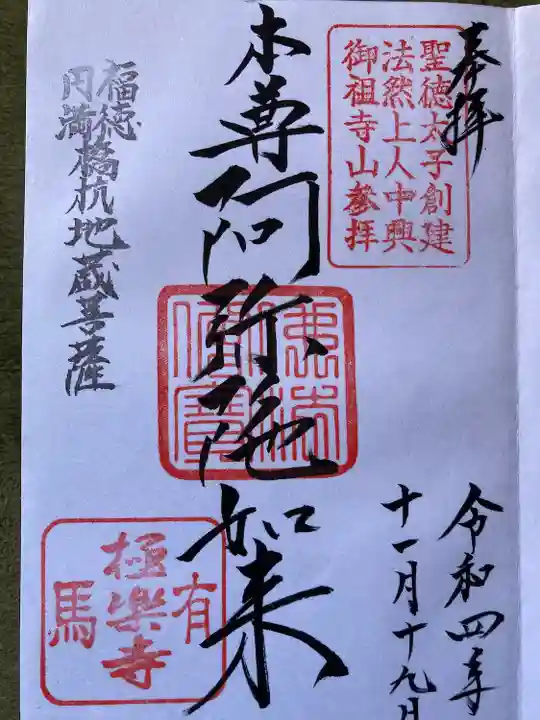 奉拝
聖徳太子創建
法然上人中興
御祖寺山参拝
本尊阿弥陀如来
佛法僧寶
福徳
円満
橋杭地蔵菩薩
有馬
極楽寺
令和四年
十一月十九日